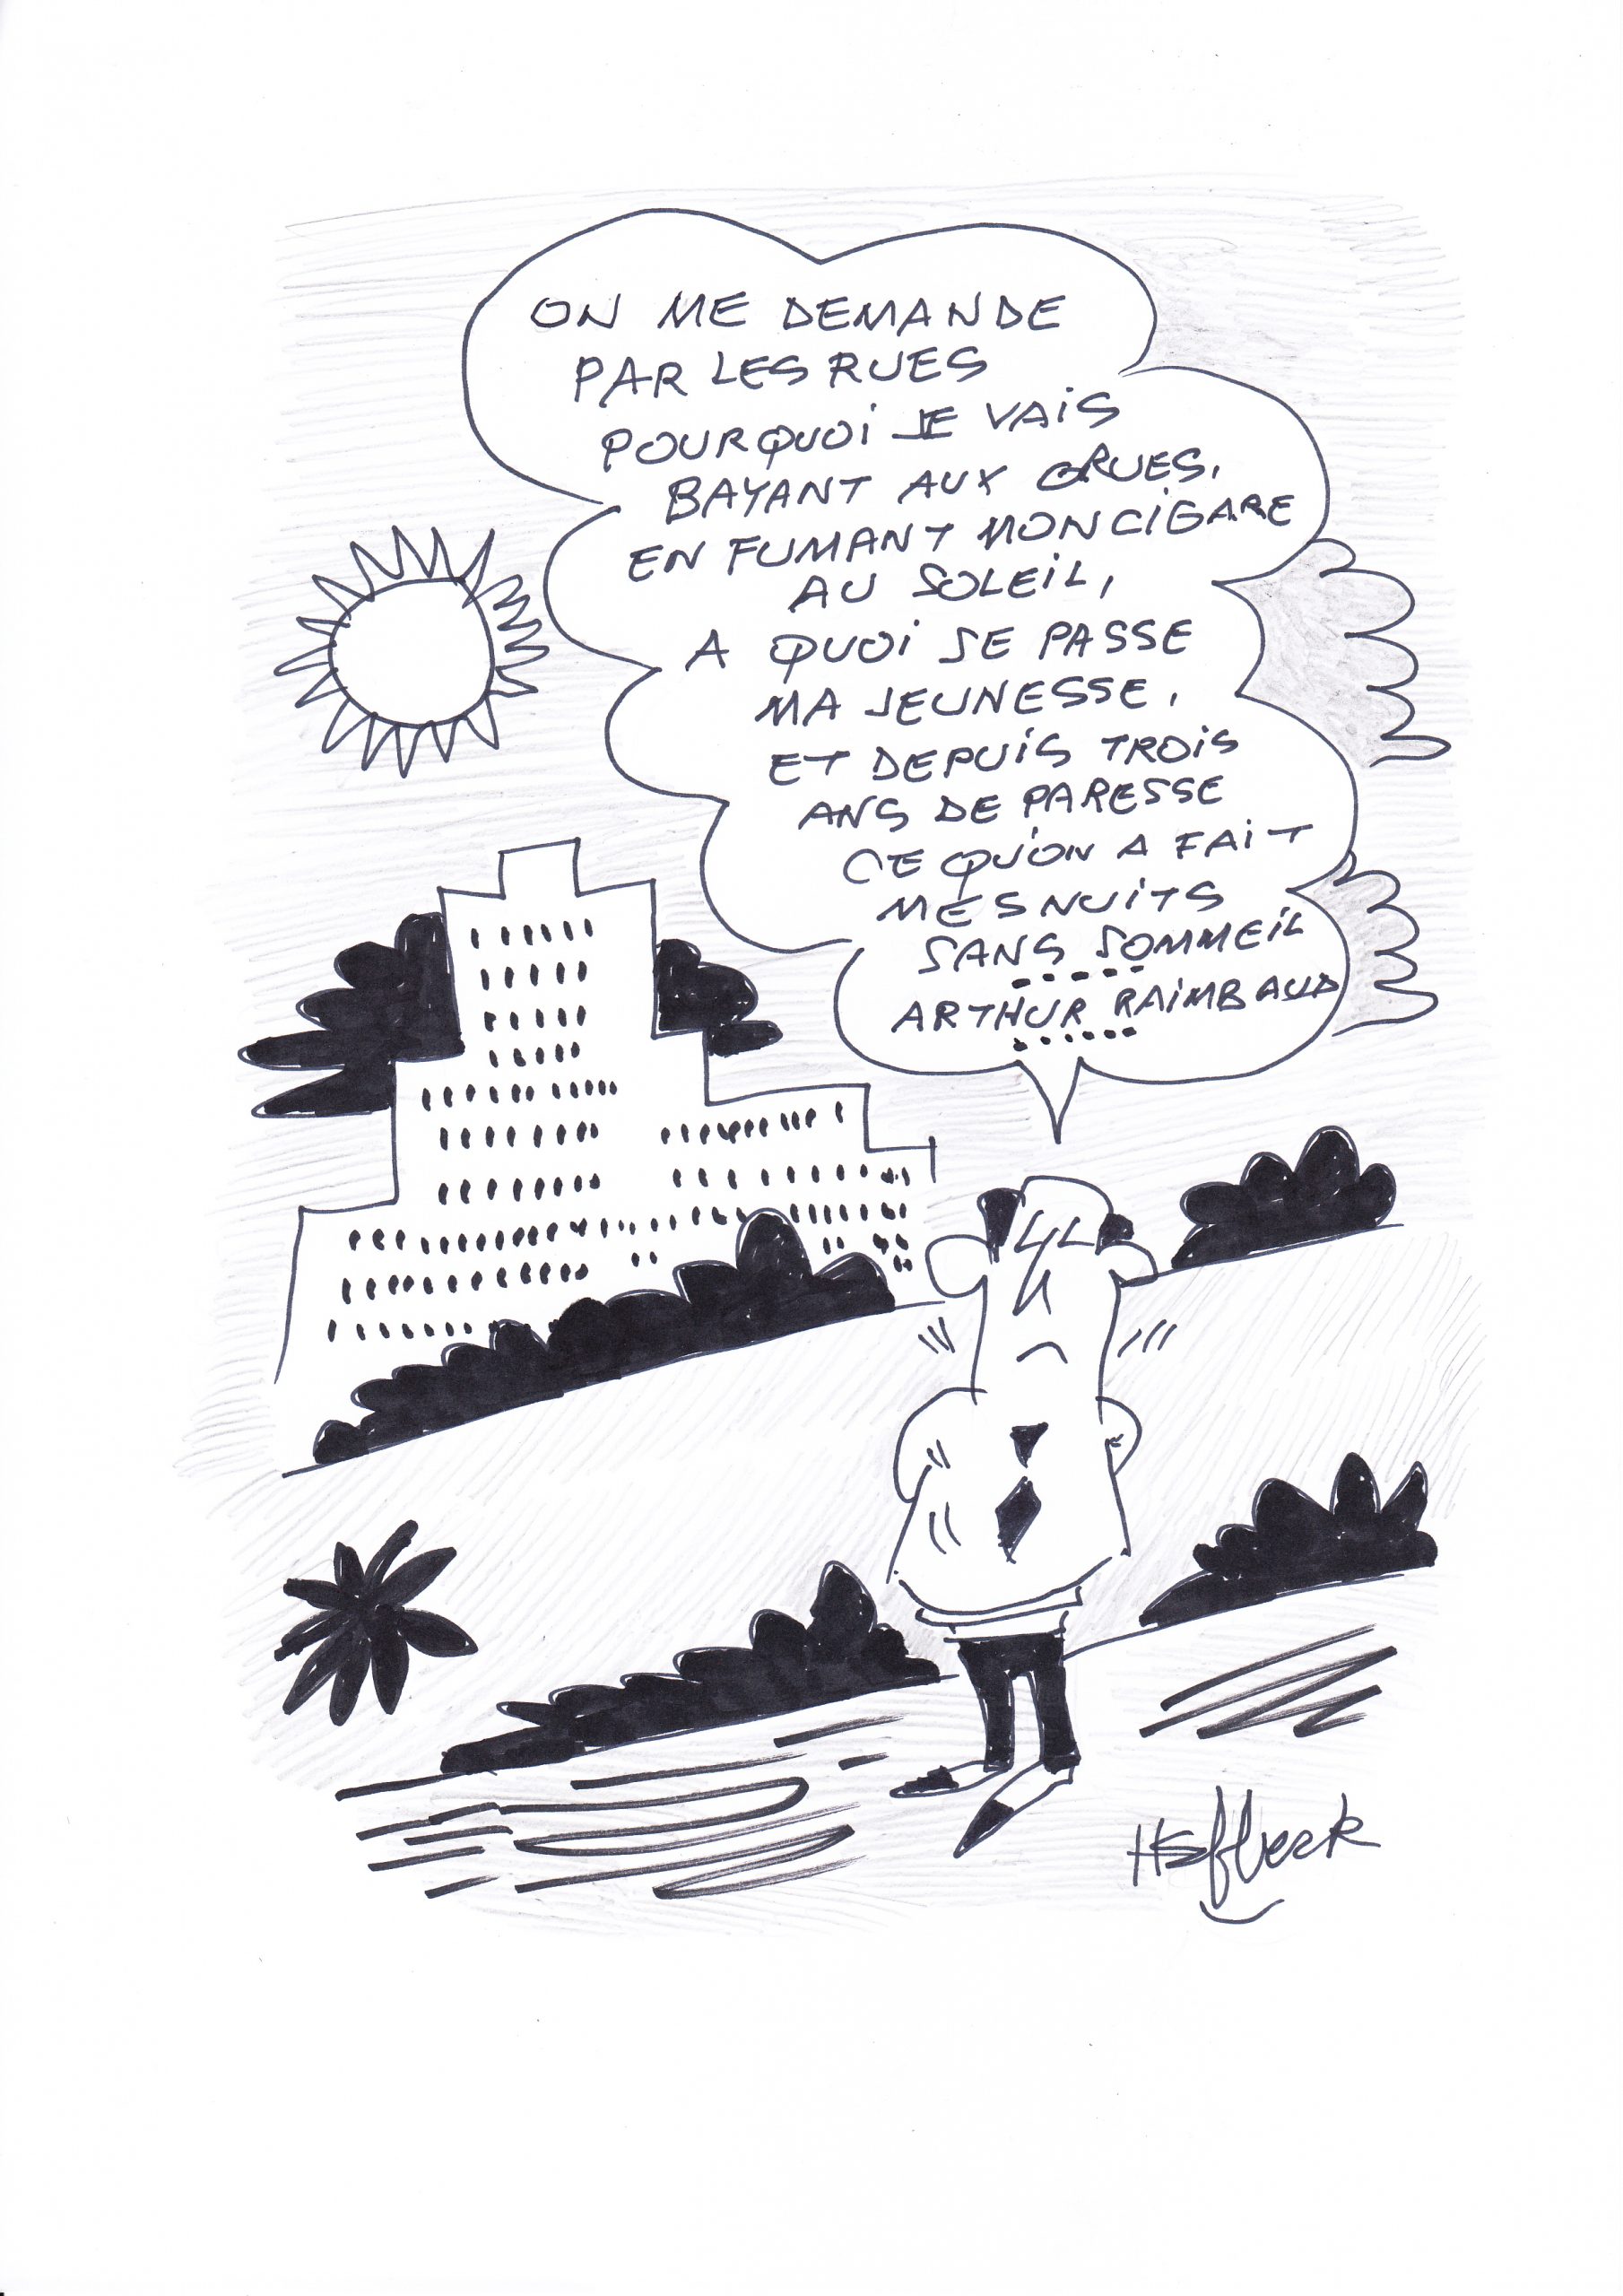 ON ME DEMANDE
PAR LES RUES
POURQUOI JE VAIS
BAYANT AUX GRUES,
EN FUMANT MON CIGARE
AU SOLEIL,
A QUOI SE PASSE
MA JEUNESSE,
ET DEPUIS TROIS
ANS DE PARESSE
CE QU'ON A FAIT
MES NUITS
SANS SOMMEIL
ARTHUR RAIMBAUD